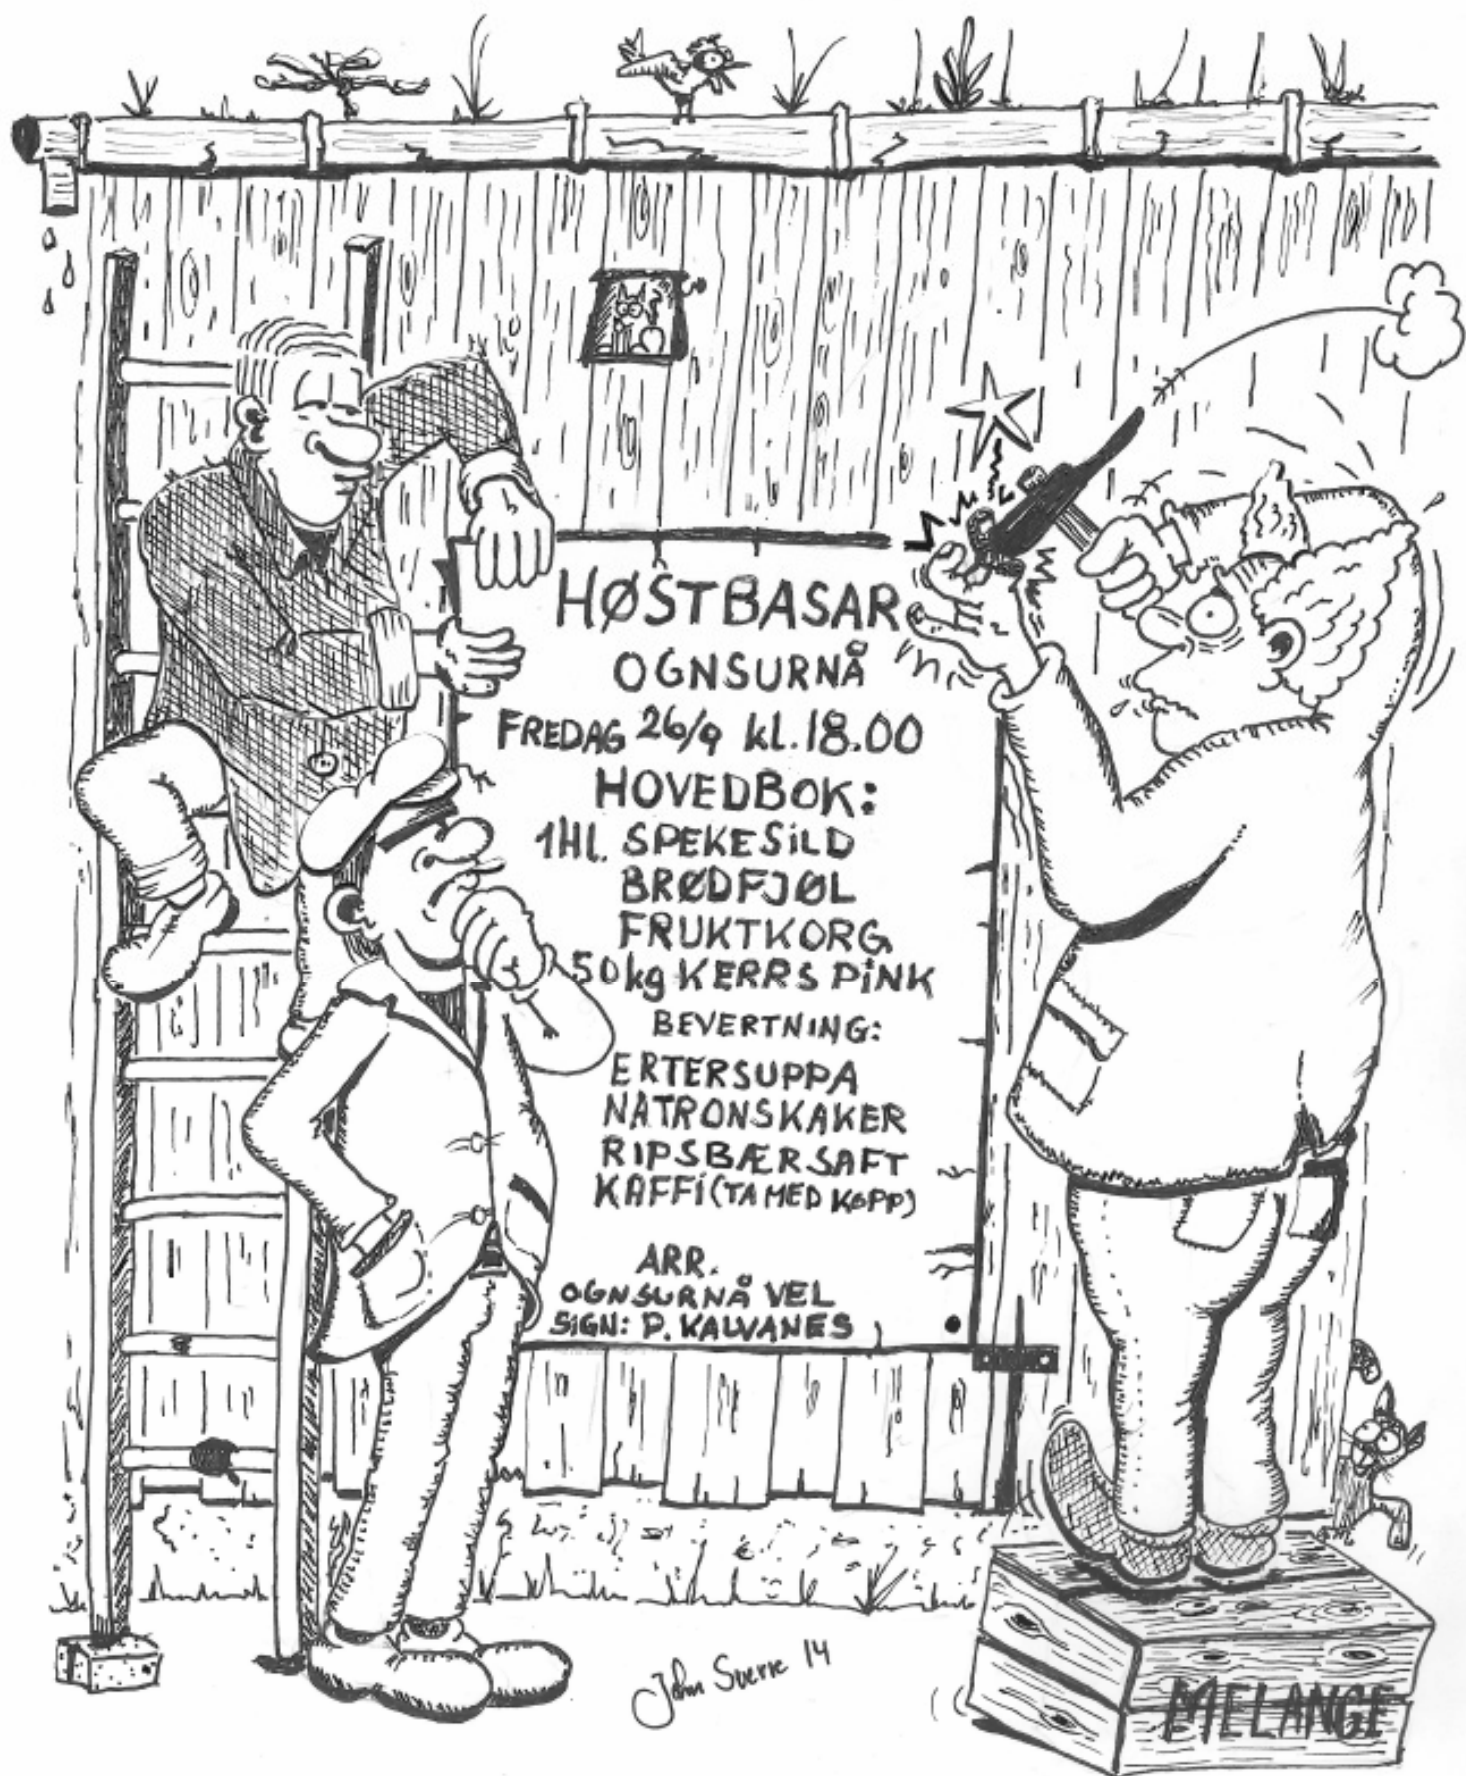 HØSTBASAR
OGNSURNÅ
FREDAG 26/9 kl. 18.00
HOVEDBOK:
1Hl. SPEKESiLD
BRØDFJØL
FRUKTKORG
50kg KERRS PiNK
BEVERTNING:
ERTERSUPPA
NATRONSKAKER
RIPSBÆRSAFT
KAFFi (TA MED KOPP)
ARR.
OGNSURNÅ VEL
SiGN: P. KALVANES
John Sverre 14
MELANGE